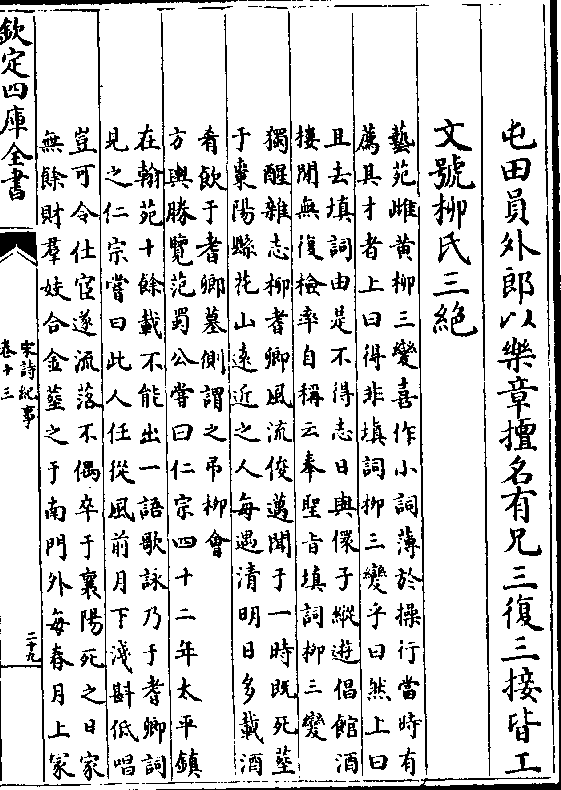 屯田員外郎以樂章擅名有兄三復三接皆工
文號栁氏三絶
藝苑雌黄柳三變喜作小詞薄於操行當時有
薦其才者上曰得非填詞柳三變乎曰然上曰
且去填詞由是不得志日與儇子縱遊倡館酒
樓間無復檢率自稱云奉聖旨填詞柳三變
獨醒雜志柳耆卿風流俊邁聞于一時既死葬
于棗陽縣花山遠近之人每遇清明日多載酒
肴飲于耆卿墓側謂之弔柳會
方輿勝覽范蜀公嘗曰仁宗四十二年太平鎮
在翰苑十餘載不能出一語歌詠乃于耆卿詞
見之仁宗嘗曰此人任從風前月下淺斟低唱
豈可令仕宦遂流落不偶卒于襄陽死之日家
無餘財羣妓合金葬之于南門外每春月上冢
欽定四庫全書
宋詩紀事
卷十三
二十九